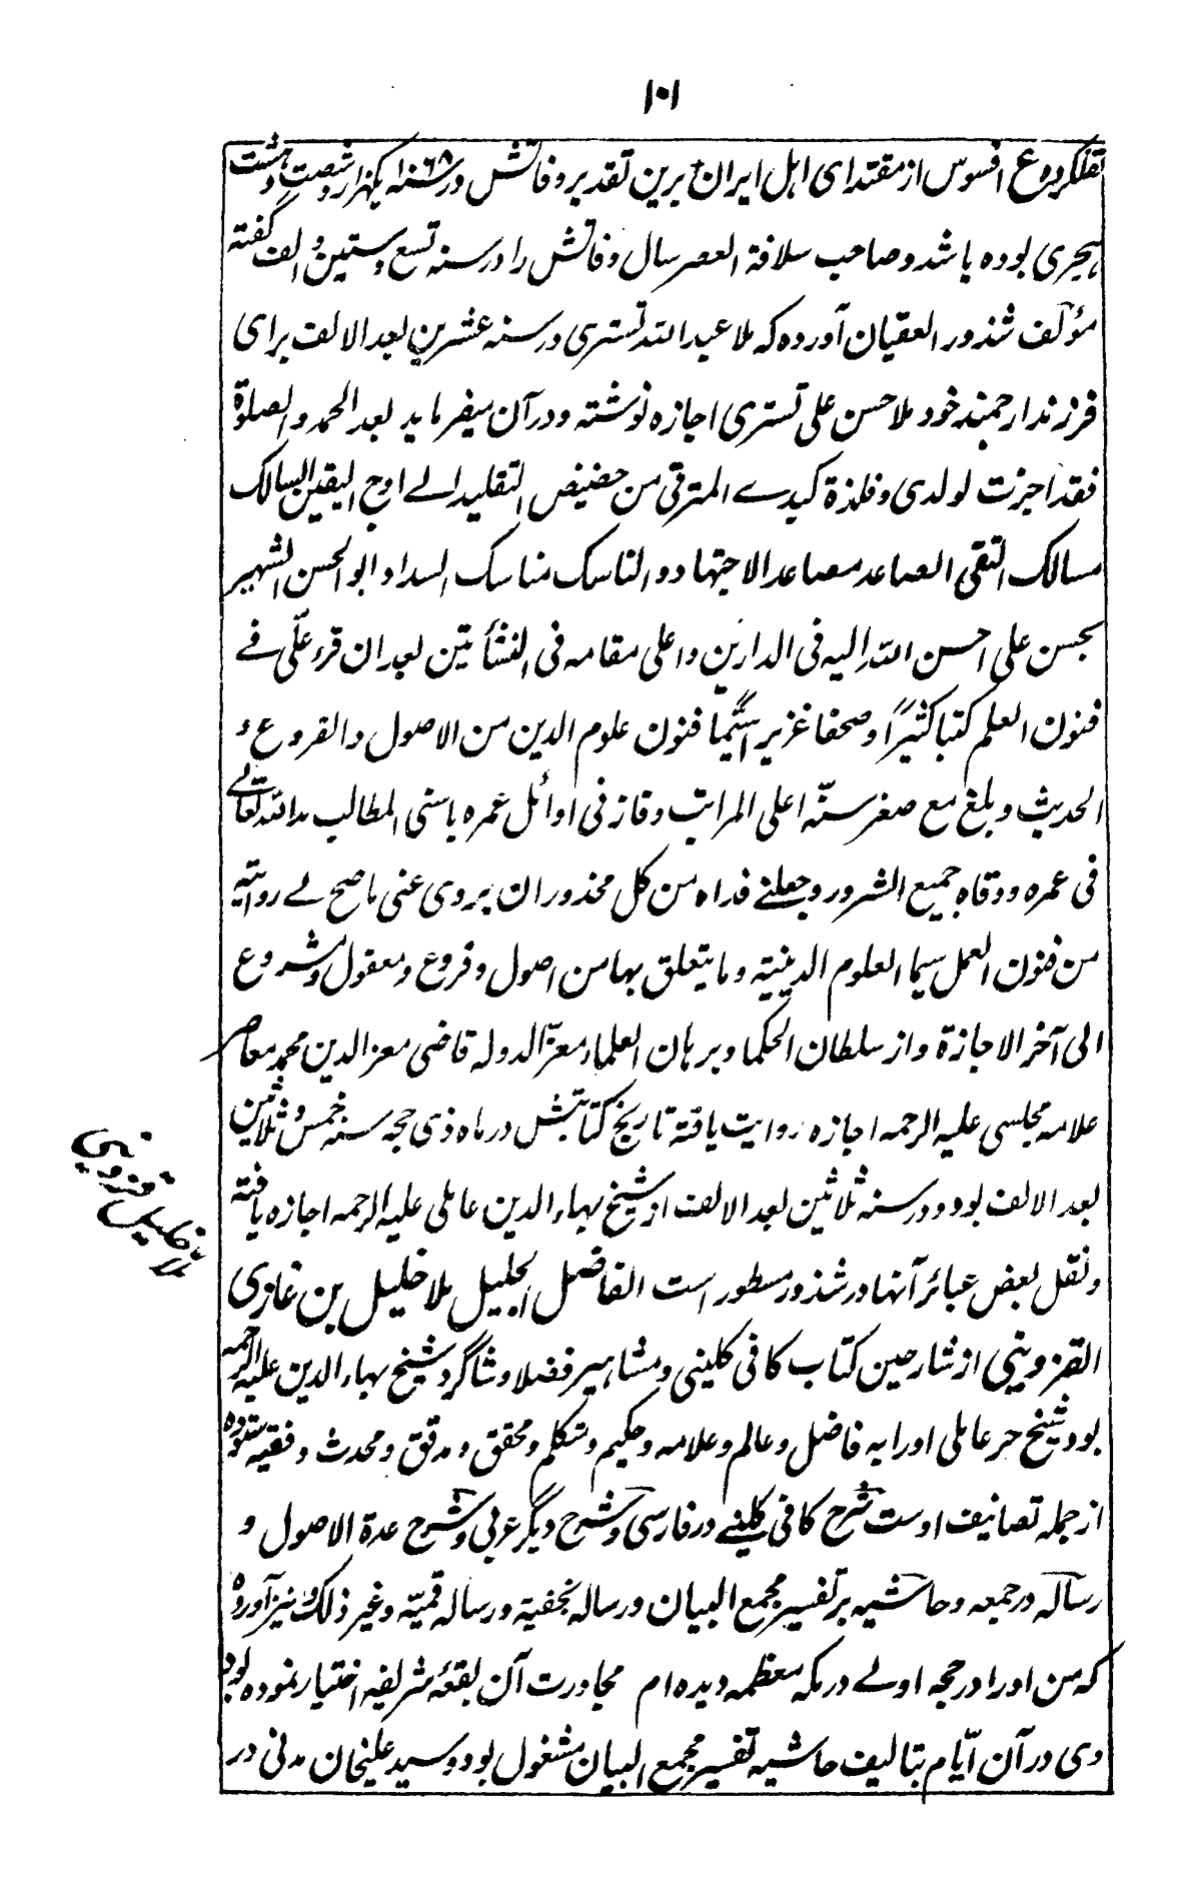 ۱۰۱
تفکر کرده ع افسوس از مقتدای اهل ایران برین تقدیر وفاتش در سنه ۱۰۶۸ یکهزار و شصت و هشت
هجری بوده باشد و صاحب سلافة العصر سال وفاتش را در سنه تسع و ستین و الف گفته
مؤلف شذور العقیان آورده که ملا عبد الله تستری در سنه عشرین بعد الالف برای
فرزند ارجمند خود ملا حسن علی تستری اجازه نوشته و در آن میفرماید بعد الحمد و الصلوة
فقد اجزت لولدی و فلذة کبدے المترقی من حضیض التقلید الے اوج الیقین السالک
مسالک التقی الصاعد مصاعد الاجتهاد و الناسک مناسک السداد ابو الحسن الشهیر
بحسن علی احسن الله الیه فی الدارین و اعلی مقامه فی النشأتین بعد ان قرء علّی فے
فنون العلم کتبا کثیرًا و صحفا غزیرا سیّما فنون علوم الدین من الاصول و الفروع و
الحدیث و بلغ مع صغر سنّه اعلی المراتب و فاز فی اوائل عمره باسنی المطالب مد الله تعالے
فی عمره و وقاه جمیع الشرور و جعلنے فداه من کل محذور ان یروی عنی ما صح لے روایته
من فنون العمل سیما العلوم الدینیة و ما یتعلق بها من اصول و فروع و معقول و مشروع
الی آخر الاجازة و از سلطان الحکما و برهان العلماء معزّ الدوله قاضی معز الدین محمد معاصر
علامه مجلسی علیه الرحمه اجازه روایت یافته تاریخ کتابتش در ماه ذی حجه سنه خمس و ثلاثین
بعد الالف بود و در سنه ثلاثین بعد الالف از شیخ بهاء الدین عاملی علیه الرحمه اجازه یافته
و نقل بعض عبائر آنها در شذور مسطور است الفاضل الجلیل ملا خلیل بن غازی
ملا خلیل قزوینی
القزوینی از شارحین کتاب کافی کلینی و مشاهیر فضلا و شاگرد شیخ بهاء الدین علیه الرحمه
بود شیخ حر عاملی او را به فاضل و عالم و علامه و حکیم و متکلم و محقق و مدقق و محدث و فقیه ستوده
از جمله تصانیف اوست شرح کافی کلینے در فارسی و شرح دیگر عربی و شرح عدة الاصول و
رساله در جمعه و حاشیه بر تفسیر مجمع البیان و رساله نجفیة و رساله قمیّه و غیر ذلک و نیز آورده
که من او را در حجه اولے در مکه معظمه دیده ام مجاورت آن بقعهٔ شریفه اختیار نموده بود
وی در آن ایّام بتالیف حاشیه تفسیر مجمع البیان مشغول بود و سید علیخان مدنی در